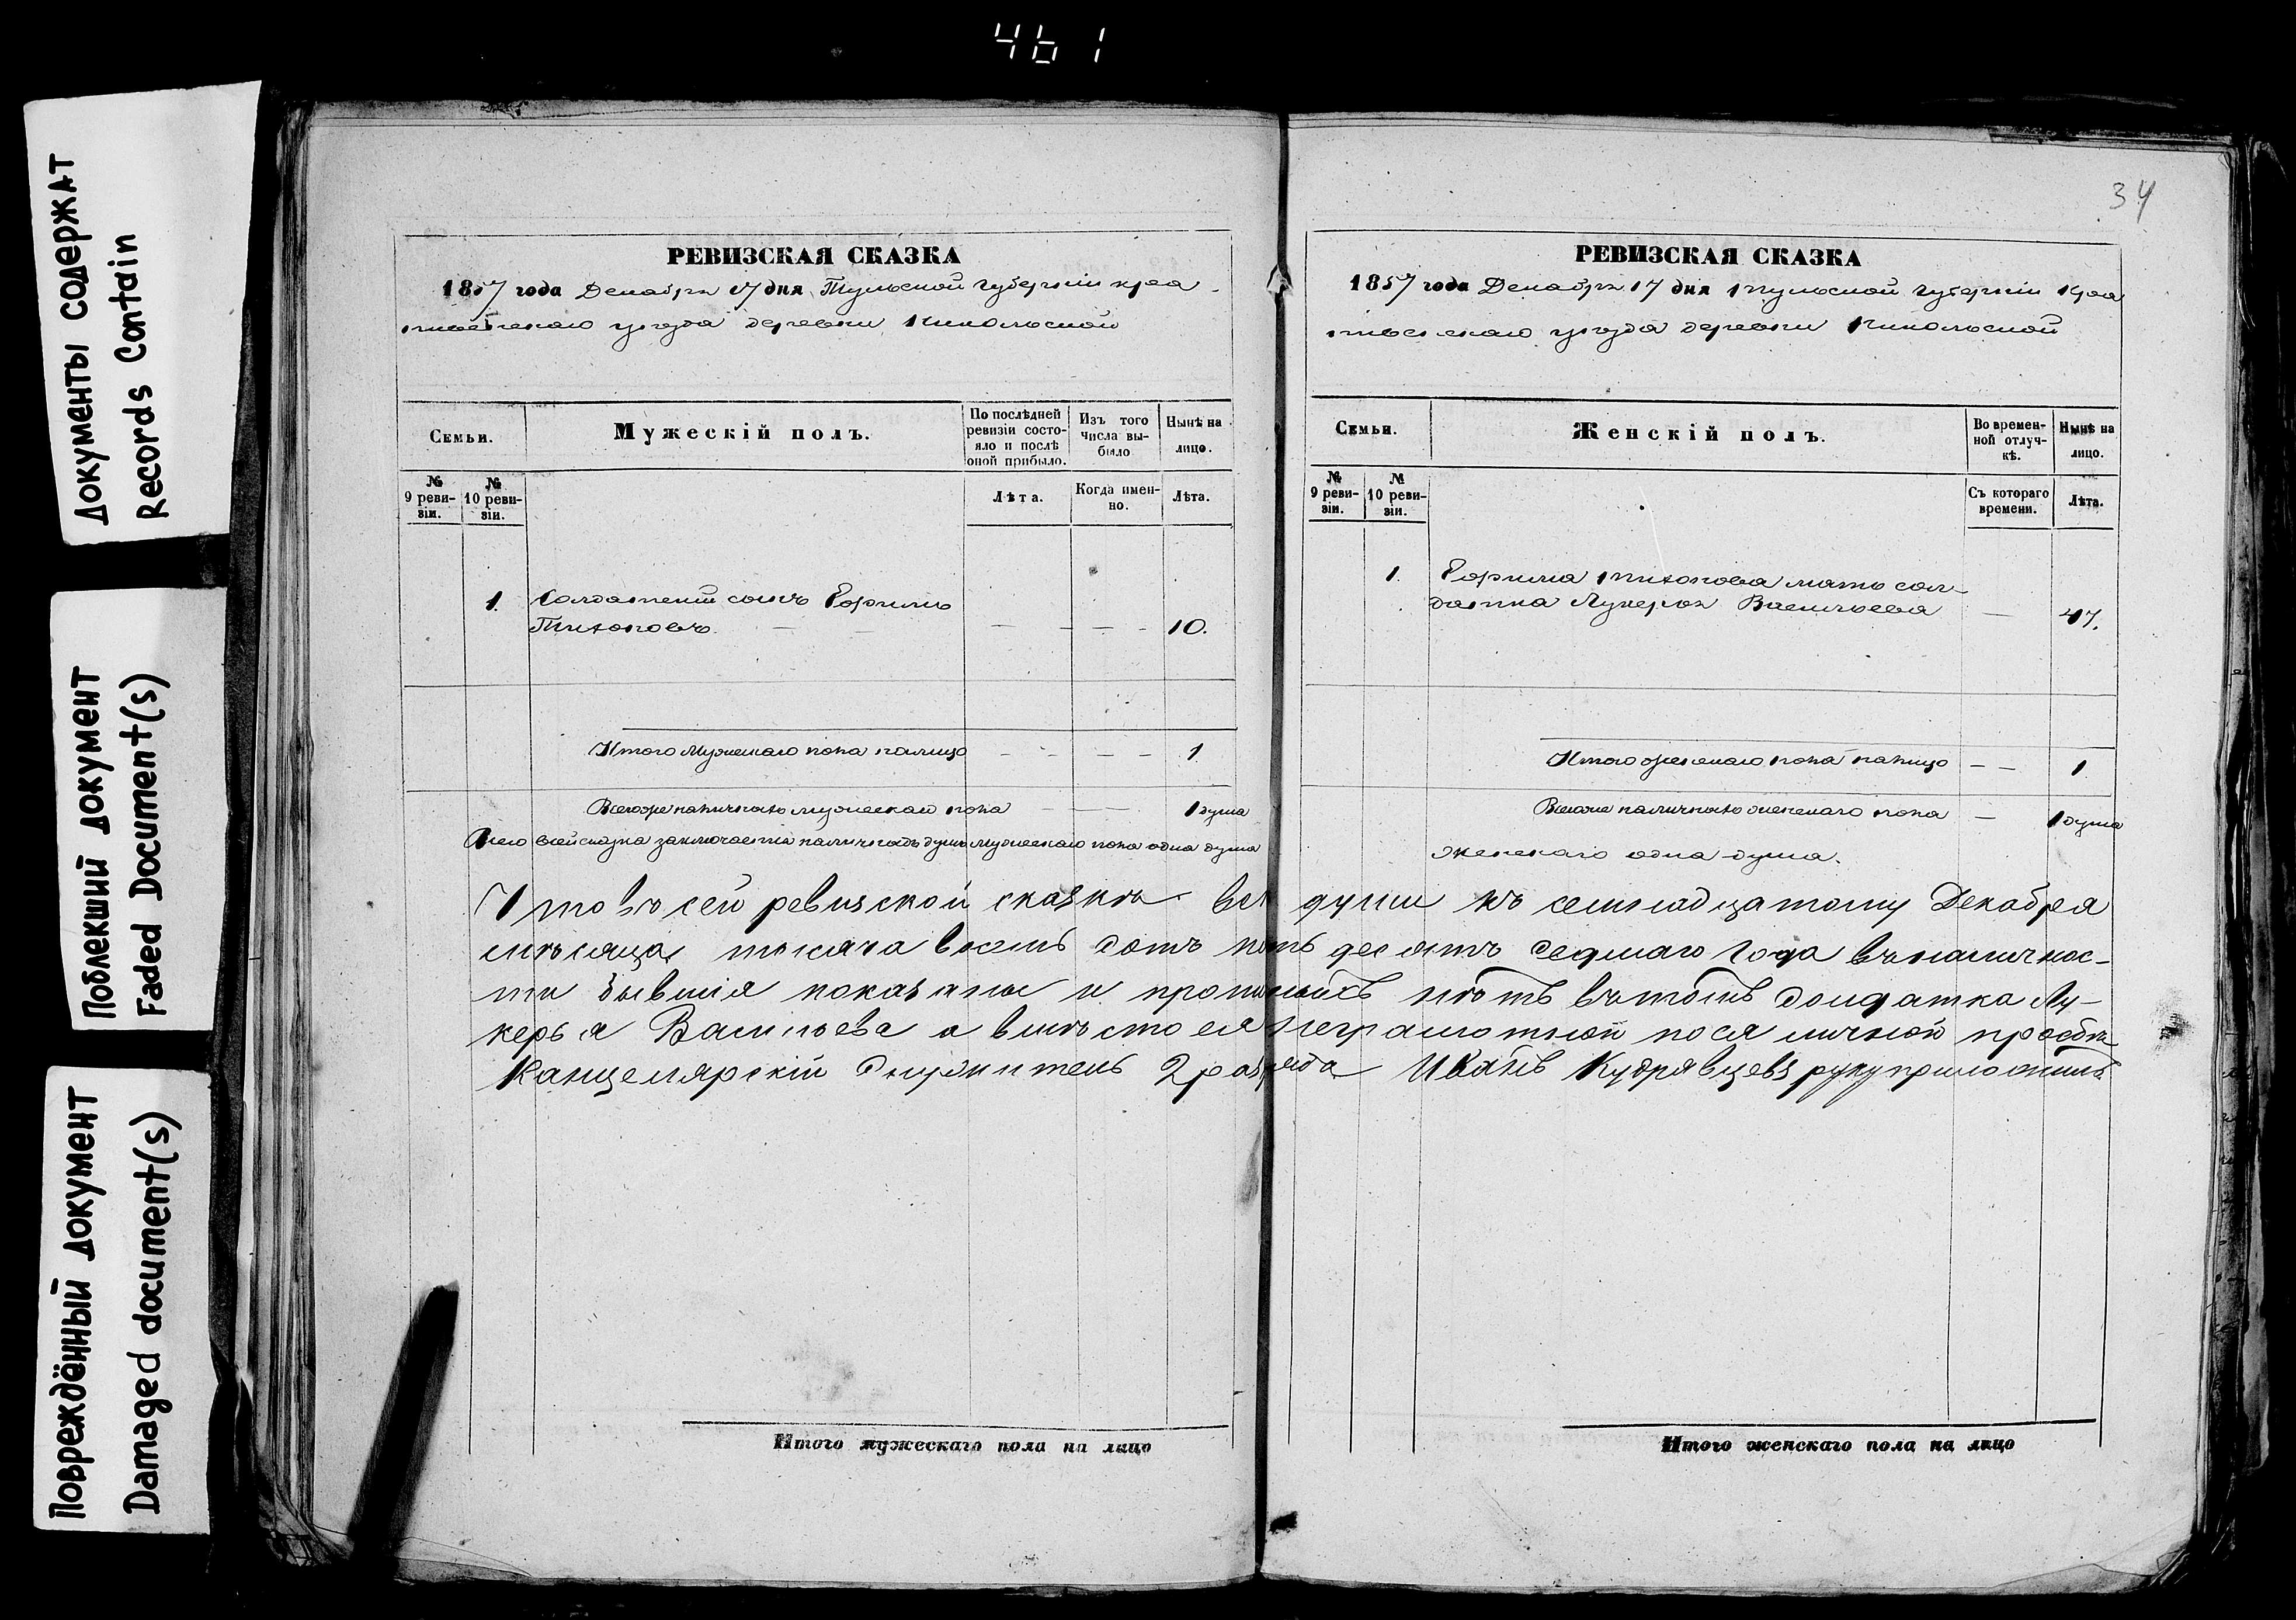 461
Документы содержат
Records Contain
Поблекший документ
Faded Document(s)
Повреждённый документ
Damaged document(s)
РЕВИЗСКАЯ СКАЗКА
1857 года Декабря 17 дня Тульской губернiи Кра
пивенскаго уезда деревни Никольской
Семьи.
Мужескiй полъ.
По послѣдней ревизiи состо-яло и послѣ оной прибыло.
Изъ того числа вы-было
Нынѣ на лицо.
№ 9 реви-зiи.
№ 10 реви-зiи.
Лѣта.
Когда имен-но.
Лѣта.
1. Солдатскiй сынъ Ефимъ
Тихоновъ. — — — — 10.
Итого мужескаго пола налицо — — — — 1
Всегоже наличныхъ мужескаго пола — — 1 душа
Всего в сей сказка заключается наличныхъ душъ мужескаго пола одна душа
34
РЕВИЗСКАЯ СКАЗКА
1857 года Декабря 17 дня Тульской губернiи Кра
пивенскаго уезда деревни Никольской
Семьи.
Женскiй полъ.
Во времен-ной отлуч-кѣ.
Нынѣ на лицо.
№ 9 реви-зiи.
№ 10 реви-зiи.
Съ котораго времени.
Лѣта.
1. Ефима Тихонова мать сол-
датка Лукерья Васильева — 47.
Итого женскаго пола налицо — — 1
Всегоже наличныхъ женскаго пола — 1 душа
женскаго одна душа.
Что въ сей ревизской сказкѣ всѣ души къ семнадцатому Декабрея
мѣсяца тысяча восемь сотъ пять десятъ седмаго года въ наличнос-
ти бывшiя показаны и прописныхъ нѣтъ въ томъ солдатка Лу-
керья Васильева а вмѣсто ея неграмотной пося личной просбы
Канцелярскiй служитель 2 разряда Иванъ Кудрявцевъ руку приложилъ
Итого мужескаго пола на лицо
Итого женскаго пола на лицо